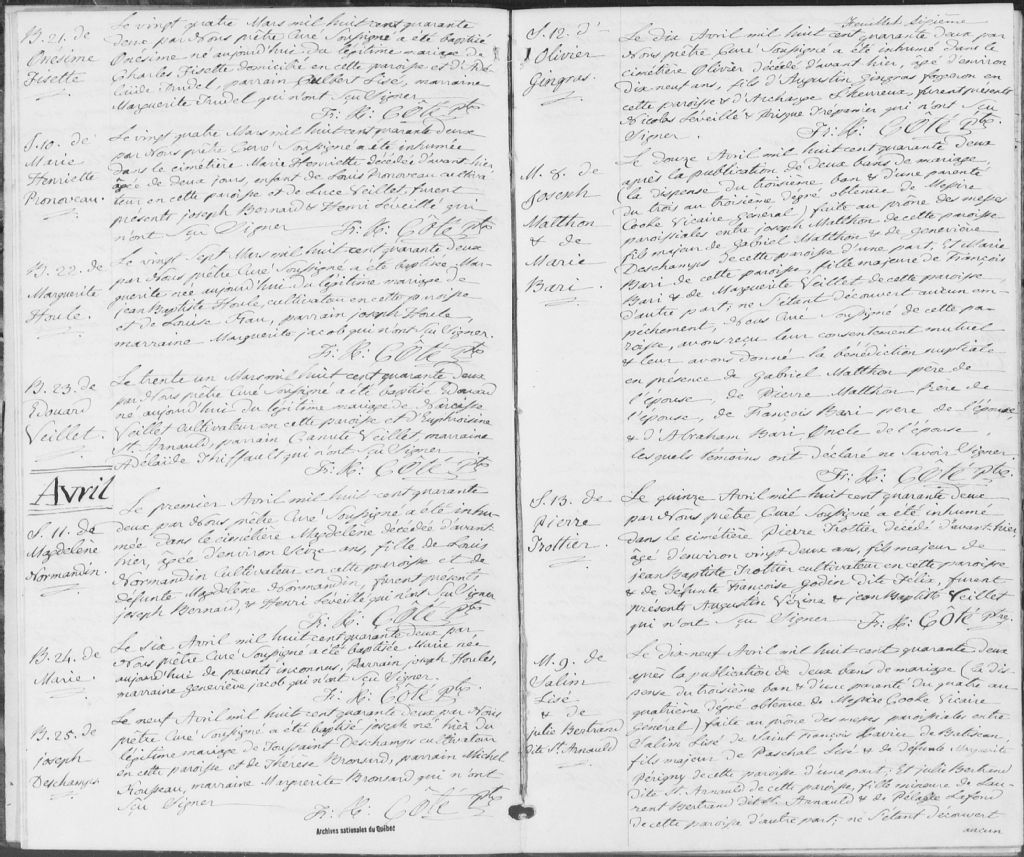 B. 21. de
Onésime
Fisette
Le vingt quatre Mars mil huit cent quarante
deux par Nous prêtre Curé Soussigné a été baptisé
Onésime né aujourd'hui du légitime mariage de
Charles Fisette domicilié en cette paroisse et d'Adé
laide Trudel, parrain Culbert Lisé, marraine
Marguerite Trudel qui n'ont Sçu Signer
Fr: X: CÔTÉ Ptre
S. 10. de
Marie
Henriette
Pronoveau.
Le vingt quatre Mars mil huit cent quarante deux
par Nous prêtre Curé Soussigné a été inhumée
dans le cimetière Marie Henriette décédée d'avant hier
âgée de deux jours, enfant de Louis Pronoveau cultiva
teur en cette paroisse et de Luce Veillet, furent
présents joseph Bernard & Henri Léveillé qui
n'ont Sçu Signer Fr: X: CÔTÉ Ptre
B. 22. de
Marguerite
Houle.
Le vingt Sept Mars mil huit cent quarante deux
par Nous prêtre Curé Soussigné a été baptisée Mar-
guerite née aujourd'hui du légitime mariage de
jean Baptiste Houle, cultivateur en cette paroisse
et de Louise Frau, parrain joseph Houle,
marraine Marguerite jacob qui n'ont Sçu Signer.
Fr: X: CÔTÉ Ptre
B. 23. de
Edouard
Veillet.
Le trente un Mars mil huit cent quarante deux
par Nous prêtre Curé Soussigné a été baptisé Edouard
né aujourd'hui du légitime mariage de Narcisse
Veillet cultivateur en cette paroisse et d'Euphroisine
St. Arnauld, parrain Canute Veillet, marraine
Adélaïde Thiffault qui n'ont Sçu Signer
Fr: X: CÔTÉ Ptre
Avril
S. 11. de
Magdelène
Normandin.
Le premier Avril mil huit cent quarante
deux par Nous prêtre Curé Soussigné a été inhu-
mée dans le cimetière Magdelène décédée d'avant
hier, âgée d'environ Seize ans, fille de Louis
Normandin Cultivateur en cette paroisse et de
défunte Magdelène Normandin, furent présents
joseph Bernard, & Henri Léveillé qui n'ont Sçu Signer
Fr: X: CÔTÉ Ptre
B. 24. de
Marie.
Le six Avril mil huit cent quarante deux par
Nous prêtre Curé Soussigné a été baptisée Marie née
aujourd'hui de parents inconnus, Parrain joseph Houle,
marraine geneviève jacob qui n'ont Sçu Signer.
Fr: X: CÔTÉ Ptre.
B. 25. de
joseph
Deschamps
Le neuf Avril mil huit cent quarante deux par Nous
prêtre Curé Soussigné a été baptisé joseph né hier du
légitime mariage de Toussaint Deschamps cultivateur
en cette paroisse et de Thérèse Bronsard, parrain Michel
Rouseau, marraine Marguerite Bronsard qui n'ont
Sçu Signer
Fr: X: CÔTÉ Ptre
Archives nationales du Québec
Feuillet Sixième
S. 12. d'
Olivier
Gingras.
Le dix Avril mil huit cent quarante deux par
Nous prêtre Curé Soussigné a été inhumé dans le
cimetière Olivier décédé d'avant hier, âgé d'environ
dix neuf ans, fils d'Augustin Gingras forgeron en
cette paroisse & d'Archange L'heureux, furent présents
Nicolas Léveillé & Prisque Trépanier qui n'ont Sçu
Signer. Fr: X: CÔTÉ Ptre.
M. 8. de
Joseph
Matthon
& de
Marie
Bari.
Le douze Avril mil huit cent quarante deux
après la publication de deux bans de mariage,
(la dispense du troisième ban & d'une parenté
du trois au troisième degré obtenue de Messire
Cooke Vicaire Général,) faite au prône des messes
paroissiales entre joseph Matthon de cette paroisse
fils majeur de Gabriel Matthon & de geneviève
Deschamps de cette paroisse d'une part, Et Marie
Bari de cette paroisse, fille majeure de François
Bari & de Marguerite Veillet de cette paroisse
d'autre part; ne S'étant découvert aucun em-
pêchement, Nous Curé Soussigné de cette pa-
roisse, avons reçu leur consentement mutuel
& leur avons donné la bénédiction nuptiale
en présence de Gabriel Matthon père de
l'épouse, de Pierre Matthon frère de
l'épouse, de François Bari père de l'épouse
& d'Abraham Bari, Oncle de l'épouse,
les quels témoins ont déclaré ne Savoir Signer.
Fr: X: CÔTÉ Ptre
S. 13. de
Pierre
Trottier.
Le quinze Avril mil huit cent quarante deux
par Nous prêtre Curé Soussigné a été inhumé
dans le cimetière Pierre Trottier décédé d'avant hier,
âgé d'environ vingt deux ans, fils majeur de
jean Baptiste Trottier cultivateur en cette paroisse
& de défunte Françoise Godin dite Félix, furent
présents Augustin Vézina & jean Baptiste Veillet
qui n'ont Sçu Signer Fr: X: CÔTÉ Ptre.
M. 9. de
Salim
Lisé
& de
julie Bertrand
dite St. Arnauld
Le dix neuf Avril mil huit cent quarante deux
après la publication de deux bans de mariage (la dis
pense du troisième ban & d'une parenté du quatre au
quatrième degré obtenue de Messire Cooke Vicaire
Général) faite au prône des messes paroissiales entre
Salim Lisé de Saint François Xavier de Batiscan,
fils majeur de Paschal Lisé & de défunte Marguerite
Périgny de cette paroisse d'une part; Et julie Bertrand
dite St. Arnauld de cette paroisse, fille mineure de Lau-
rent Bertrand dit St. Arnauld & de Pélagie Lafond
de cette paroisse d'autre part; ne S'étant découvert
aucun